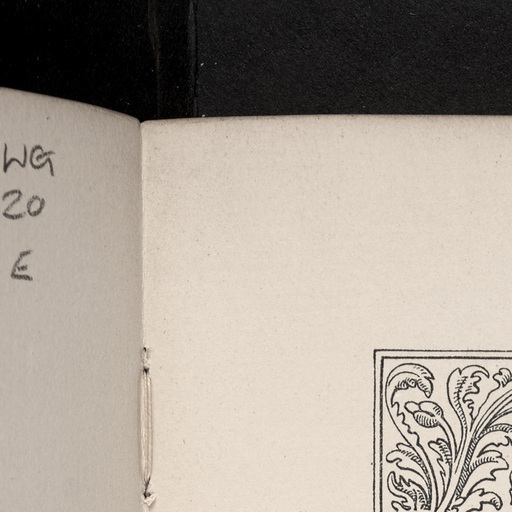 WG
20
E